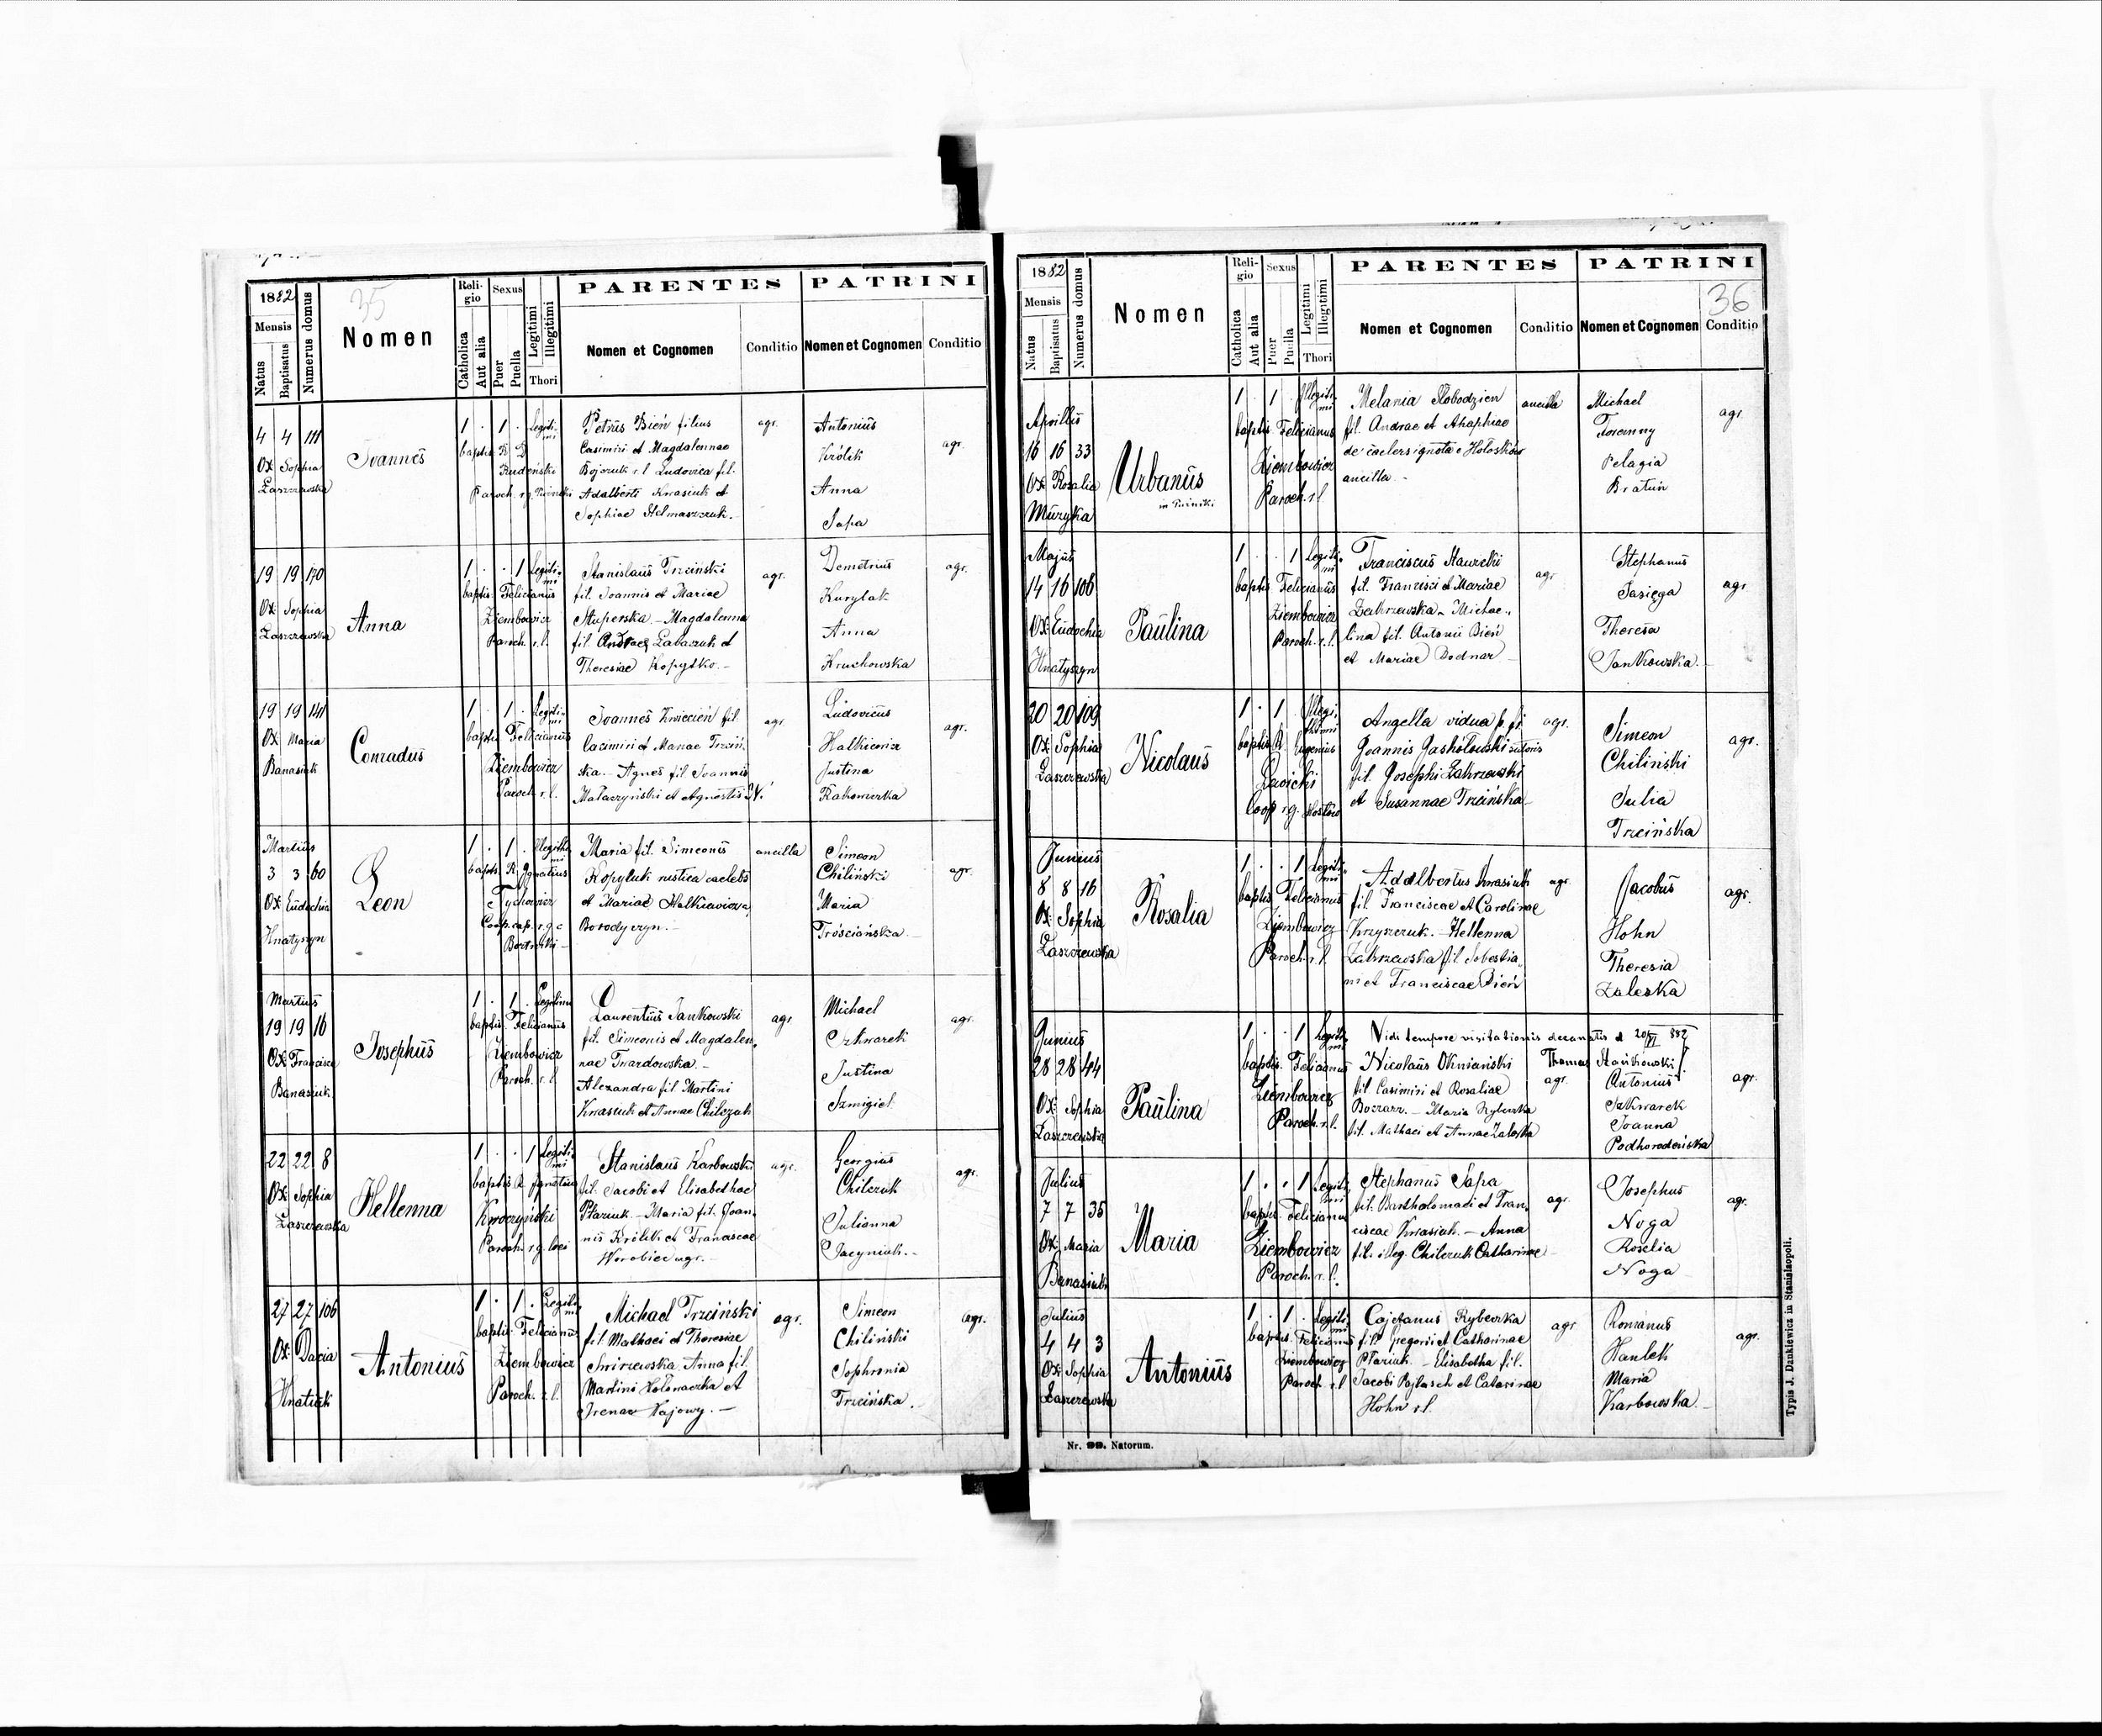 35
1882
Mensis
Natus
Baptisatus
Numerus domus
Nomen
Religio
Catholica
Aut alia
Sexus
Puer
Puella
Legitimi
Illegitimi
Thori
PARENTES
Nomen et Cognomen
Conditio
PATRINI
Nomen et Cognomen
Conditio
4 4 111
Ox Sophia
Laszczewska
Joannes
1 . 1 . Legitimi
baptis R D
Rudeński
Paroch. r.g.
Petrus Bień filius
Casimiri et Magdalennae
Bojczuk r.l Ludovica fil.
Adalberti Kwasiuk et
Sophiae Stelmaszczuk.
agr.
Antonius
Królik
Anna
Sapa
agr.
19 19 170
Ox Sophia
Laszczewska
Anna
1 . . 1 Legitimi
baptis. Felicianus
Ziembowicz
Paroch. r.l.
Stanislaus Trzciński
fil. Joannis et Mariae
Stuperska - Magdalenna
fil. Andreae Labaczuk et
Theresiae Kopytko. -
agr.
Demetrius
Kurylak
Anna
Kruchowska
agr.
19 19 141
Ox Maria
Banasiuk
Conradus
1 . 1 . Legitimi
baptis Felicianus
Ziembowicz
Paroch r.l.
Joannes Kwiecień fil.
Casimiri et Mariae Trzciń
ska. - Agnes fil Joannis
Matarzyński et Agnetis
agr.
Ludovicus
Halkiewicz
Justina
Rakowiecka
agr.
Martius
3 3 60
Ox Eudochia
Hnatyszyn
Leon
1 . 1 . Illegitimi
baptis. R. Ignatius
Tychowicz
Coop. cap. r.g.c
Maria fil. Simeonis
Kopyluk rustica caelebs
et Mariae Halkiewicz
Borodyczyn. -
ancilla
Simeon
Chiliński
Maria
Trościańska. -
agr.
Martius
19 19 16
Ox Francisca
Banasiuk
Josephus
1 . 1 . Legitimi
baptis. Felicianus
Ziembowicz
Paroch. r.l.
Laurentius Jankowski
fil. Simeonis et Magdalen.
nae Twardowska. -
Alexandra fil Martini
Kwasiuk et Annae Chilczuk
agr
Michael
Szkwarek
Justina
Szmigiel
agr.
22 22 8
Ox Sophia
Laszczewska
Hellenna
1 . . 1 Legitimi
baptis R Ignatius
Kwoczyński
Paroch. r.g. loci
Stanislaus Karbowski
fil. Jacobi et Elisabethae
Ptaziuk - Maria fil. Joan.
nis Królik et Franciscae
Worobiec agr. -
agr.
Georgius
Chilczuk
Julianna
Jacyniuk. -
agr.
27 27 106
Ox Dacia
Hnatiuk
Antonius
1 . 1 . Legitimi
baptis. Felicianus
Ziembowicz
Paroch. r.l.
Michael Trzciński
fil Mathaei et Theresiae
Anna fil.
Martini Hołonaczka et
Irenae Hajowy. -
agr.
Simeon
Chiliński
Sophronia
Trzcińska.
agr.
1882
Mensis
Natus
Baptisatus
Numerus domus
Nomen
Religio
Catholica
Aut alia
Sexus
Puer
Puella
Legitimi
Illegitimi
Thori
PARENTES
Nomen et Cognomen
Conditio
PATRINI
36
Nomen et Cognomen
Conditio
Aprillis
16 16 33
Ox Rosalia
Muzyka
Urbanus
1 . 1 . Illegitimi
baptis Felicianus
Ziembowicz
Paroch. r.l
Melania Słobodzien
fil. Andrae et Ahaphiae
de caelers ignota e Hołoskow
ancilla -
ancilla
Michael
Foranny
Pelagia
Bratun
agr.
Majus
14 16 106
Ox Eudochia
Hnatyszyn
Paulina
1 . . 1 Legitimi
baptis Felicianus
Ziembowicz
Paroch. r.l.
Franciscus Stawecki
fil. Francisci et Mariae
Zakrzewska - Michae.,
lina fil. Antonii Bień
et Mariae Bodnar -
agr
Stephanus
Sasięga
Theresa
Jankowska. -
agr
20 20 109
Ox Sophia
Laszczewska
Nicolaus
1 . 1 Illegitimi
baptis R. Eugenius
Coop r.g.
Angella vidua p. fr
Joannis
fil. Josephi Zakrzewski
et Susannae Trzcińska -
agr.
Simeon
Chiliński
Julia
Trzcińska
agr.
Junius
8 8 16
Ox Sophia
Laszczewska
Rosalia
1 . . 1 Legitimi
baptis. Felicianus
Ziembowicz
Paroch r.l.
Adalbertus Kwasiuk
fil Franciscae et Carolinae
Krzyszczuk. - Hellenna
Zakrzewska fil. Sebastia.,
ni et Franciscae Bień
agr.
Jacobus
Hohn
Theresia
Zaleska
agr.
Vidi tempore visitationis decanalis d 20/VI 882
Thomas
Junius
28 28 44
Ox Sophia
Laszczewska
Paulina
1 . . 1 Legitimi
baptis. Felicianus
Ziembowicz
Paroch r.l.
Nicolaus Okniański
fil Casimiri et Rosaliae
Maria Rybeczka
fil. Mathaei et Annae Zaleska
agr.
Antonius
Szkwarek
Joanna
Podhorodeńska
agr.
Julius
7 7 35
Ox Maria
Banasiuk
Maria
1 . . 1 Legitimi
baptis. Felicianus
Ziembowicz
Paroch. r.l.
Stephanus Sapa
fil. Bartholomaei et Fran.
ciscae Kwasiuk. - Anna
fil. illeg. Chilczuk Catharinae -
agr.
Josephus
Noga
Roselia
Noga
agr.
Julius
4 4 3
Ox Sophia
Laszczewska
Antonius
1 . 1 . Legitimi
baptis. Felicianus
Ziembowicz
Paroch r.l
Cajetanus Rybeczka
fil. Gregorii et Catharinae
Ptaziuk. - Elisabetha fil.
Jacobi Pajtasch et Catarinae
Hohn r.l.
agr.
Romanus
Hawlek
Maria
Karbowska. -
agr.
Nr. 99. Natorum.
Typis J. Dankiewicz in Stanislaopoli.